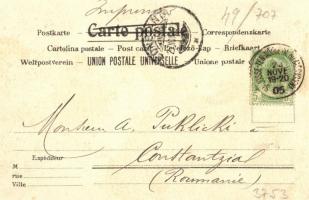 Imprimé
49/707
Carte postale
Postkarte — Correspondenzkarte
Cartolina postale — Post card — Levelező-Lap — Briefkaart
Weltpostverein — UNION POSTALE UNIVERSELLE — Unione postale
24
NOVE
18-19
05
Monsieur A. Puklicki
à
Constantza
(Roumanie)
Expéditeur
M
rue
Ville
3753